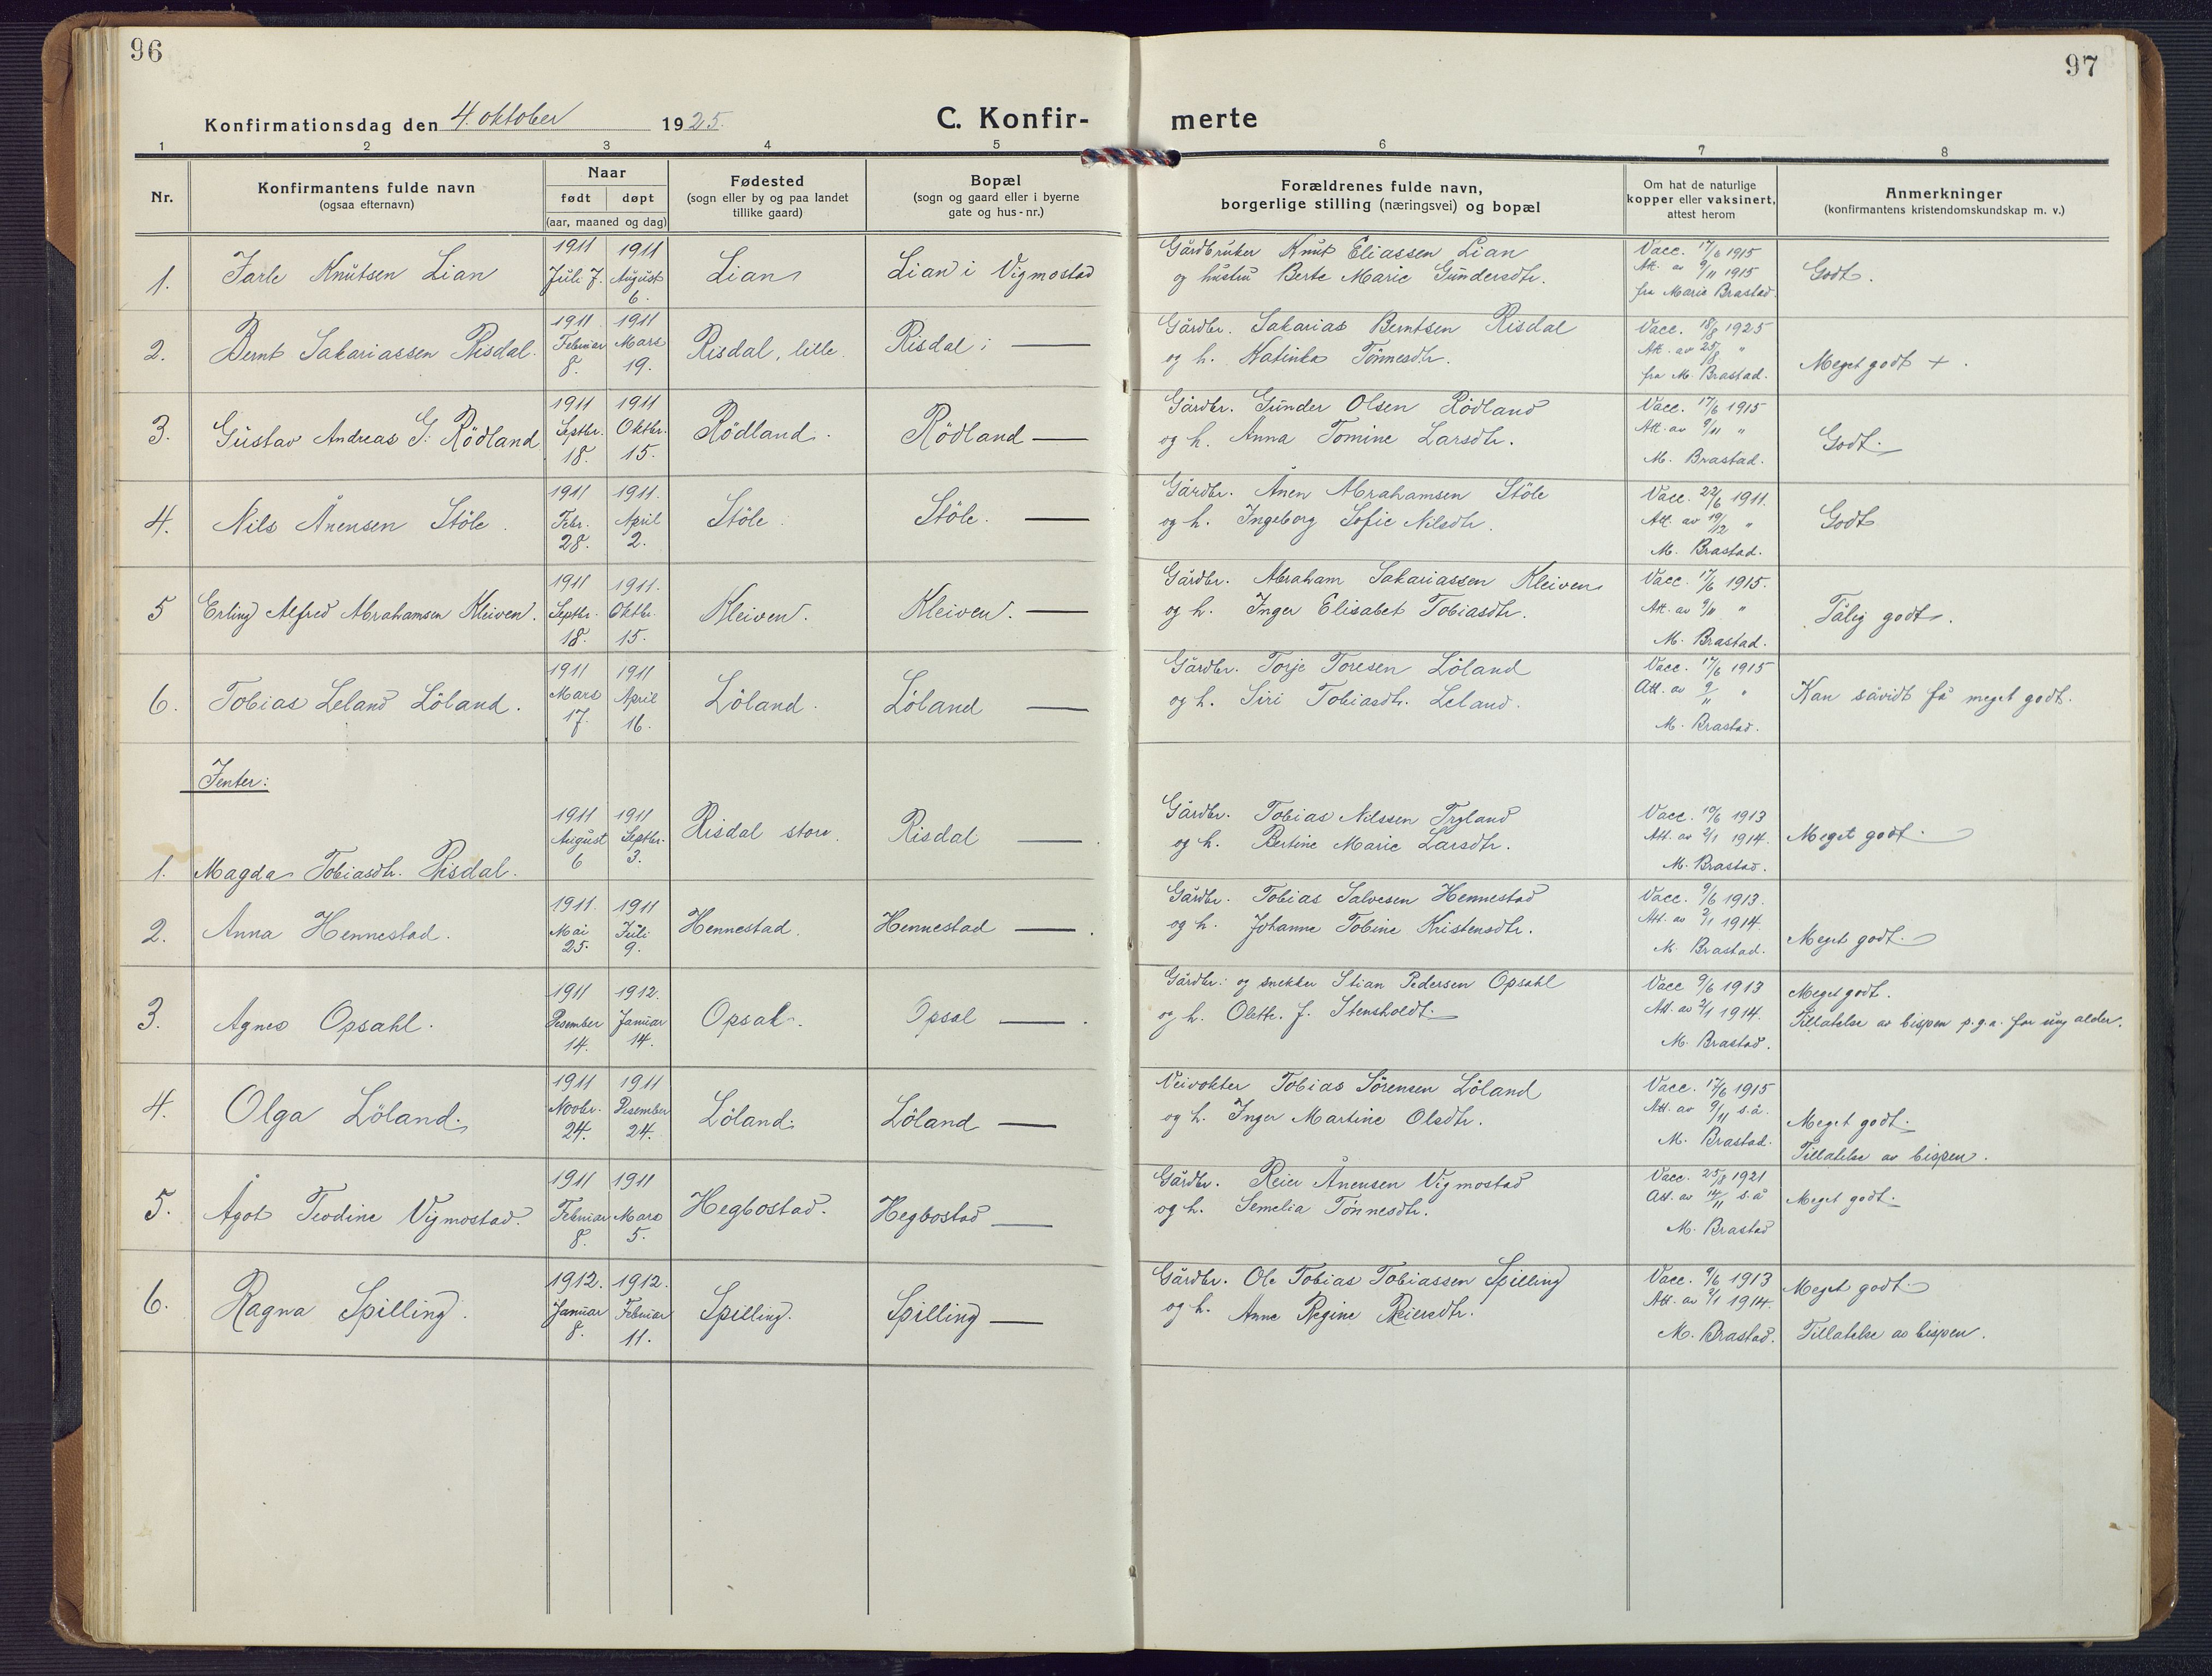 96
97
Konfirmationsdag den 4. oktober 1925.
C. Konfir-
merte
1 2 3 4 5 6 7 8
Nr.
Konfirmantens fulde navn
(ogsaa efternavn)
Naar
født døpt
(aar, maaned og dag)
Fødested
(sogn eller by og paa landet
tillike gaard)
Bopæl
(sogn og gaard eller i byerne
gate og hus-nr.)
Forældrenes fulde navn,
borgerlige stilling (næringsvei) og bopæl
Om hat de naturlige
kopper eller vaksinert,
attest herom
Anmerkninger
(konfirmantens kristendomskundskap m. v.)
1. Jarle Knutsen Lian
1911 Juli 7.
1911 August 6.
Lian
Lian i Vigmostad
Gårdbruker Knut Eliassen Lian
og hustru Berte Marie Gundersdtr.
Vacc. 17/6 1915
Att. av 9/11 1915
fra Marie Brastad.
Godt.
2. Bernt Sakariassen Risdal.
1911 Februar 8.
1911 Mars 19.
Risdal, lille.
Risdal i —
Gårdbr. Sakarias Berntsen Risdal
og h. Katinka Tönnesdtr.
Vacc. 18/8 1925
Att. av 25/8 "
fra M. Brastad.
Meget godt + .
3. Gustav Andreas G. Rödland
1911 Septbr. 18.
1911 Oktbr. 15.
Rödland.
Rödland —
Gårdbr. Gunder Olsen Rödland
og h. Anna Tomine Larsdtr.
Vacc. 17/6 1915
Att. av 9/11 "
M. Brastad.
Godt.
4. Nils Ånensen Stöle.
1911 Febr. 28.
1911. April 2.
Stöle.
Stöle. —
Gårdbr. Ånen Abrahamsen Stöle
og h. Ingeborg Sofie Nilsdtr.
Vacc. 22/6 1911.
Att. av 19/12 "
M. Brastad.
Godt
5 Erling Alfred Abrahamsen Kleiven.
1911 Septbr. 18.
1911. Oktbr. 15.
Kleiven.
Kleiven. —
Gårdbr. Abraham Sakariassen Kleiven
og h. Inger Elisabet Tobiasdtr.
Vacc. 17/6 1915.
Att. av 9/11 "
M. Brastad.
Tålig godt.
6. Tobias Leland Löland.
1911 Mars 17.
1911 April 16.
Löland.
Löland —
Gårdbr. Torje Toresen Löland
og h. Siri Tobiasdtr. Leland.
Vacc. 17/6 1915
Att. av 9/11 "
M. Brastad.
Kan såvidt få meget godt.
Jenter:
1. Magda Tobiasdtr. Risdal.
1911 August 6
1911 Septbr. 3.
Risdal store.
Risdal — .
Gårdbr. Tobias Nilssen Tryland
og h. Bertine Marie Larsdtr.
Vacc. 10/6 1913
Att. av 2/1 1914.
M. Brastad.
Meget godt.
2. Anna Hennestad.
1911. Mai 25.
1911 Juli 9.
Hennestad.
Hennestad — .
Gårdbr. Tobias Salvesen Hennestad
og h. Johanne Tobine Kristensdtr.
Vacc. 9/6 1913.
Att. av 2/1 1914.
M. Brastad.
Meget godt.
3. Agnes Opsahl.
1911 Desember 14.
1912. Januar 14.
Opsal.
Opsal — .
Gårdbr. og snekker Stian Pedersen Opsahl
og h. Olette f. Stensholdt.
Vacc 9/6 1913
Att. av 2/1 1914.
M. Brastad.
Meget godt.
Tillatelse av bispen p.g.a. for ung alder.
4. Olga Löland.
1911 Novbr. 24.
1911 Desember 24.
Löland.
Löland —
Veivokter Tobias Sörensen Löland
og h. Inger Martine Olsdtr.
Vacc. 17/6 1915
Att. av 9/11 s.å.
M. Brastad.
Meget godt.
Tillatelse av bispen.
5. Ågot Teodine Vigmostad.
1911 Februar 8.
1911 Mars 5.
Hegbostad.
Hegbostad —
Gårdbr. Reier Ånensen Vigmostad
og h. Semelia Tönnesdtr.
Vacc. 25/8 1921
Att. av 14/11 s.å
M. Brastad
Meget godt.
6. Ragna Spilling.
1912. Januar 8.
1912. Februar 11.
Spilling.
Spilling —
Gårdbr. Ole Tobias Tobiassen Spilling
og h. Anne Regine Reiersdtr.
Vacc. 9/6 1913
Att. av 2/1 1914.
M. Brastad.
Meget godt
Tillatelse av bispen.